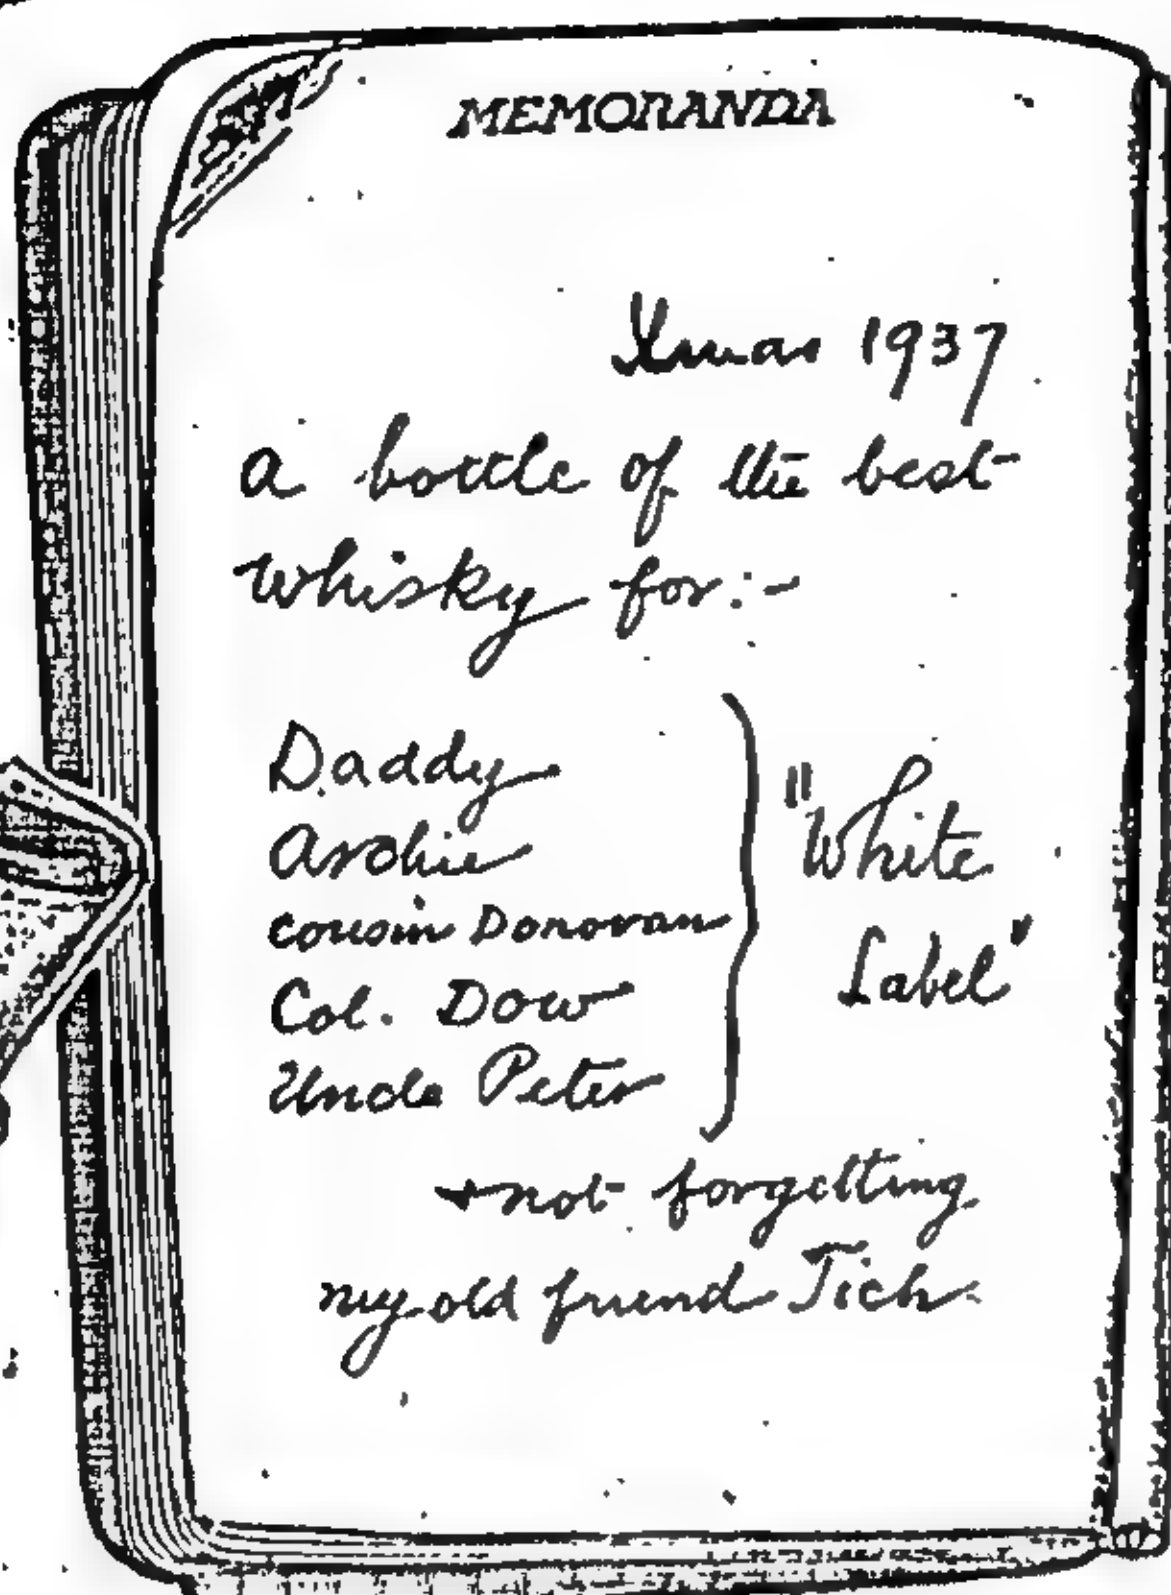 MEMORANDA
Xmas 1937
a bottle of the best
whisky for:-
Daddy
Archie
Cousin Donovan
Col. Dow
Uncle Peter
"White
Label"
+ not forgetting
my old friend Tich.